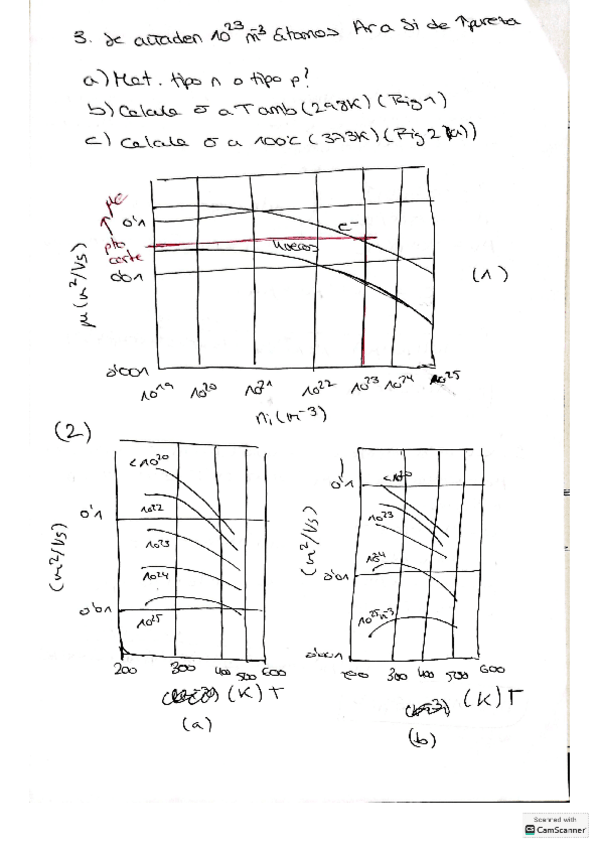 3. Se añaden 10²³ m⁻³ átomos Ar a Si de pureza
a) Mat. tipo n o tipo p?
b) Calcule σ a Tamb (298K) (Fig 1)
c) Calcule σ a 100°C (373K) (Fig 2 (a))
μe
0'1
pto corte
0'01
0'001
μ (m²/Vs)
e⁻
Huecos
(1)
10¹⁹ 10²⁰ 10²¹ 10²² 10²³ 10²⁴ 10²⁵
ni (m⁻³)
(2)
(m²/Vs)
0'1
0'01
<10²⁰
10²²
10²³
10²⁴
10²⁵
200 300 400 500 600
(K) T
(a)
(m²/Vs)
0'1
0'01
0'001
10²³
10²⁴
10²⁵ m⁻³
300 400 500 600
(K) T
(b)
Scanned with
CS CamScanner